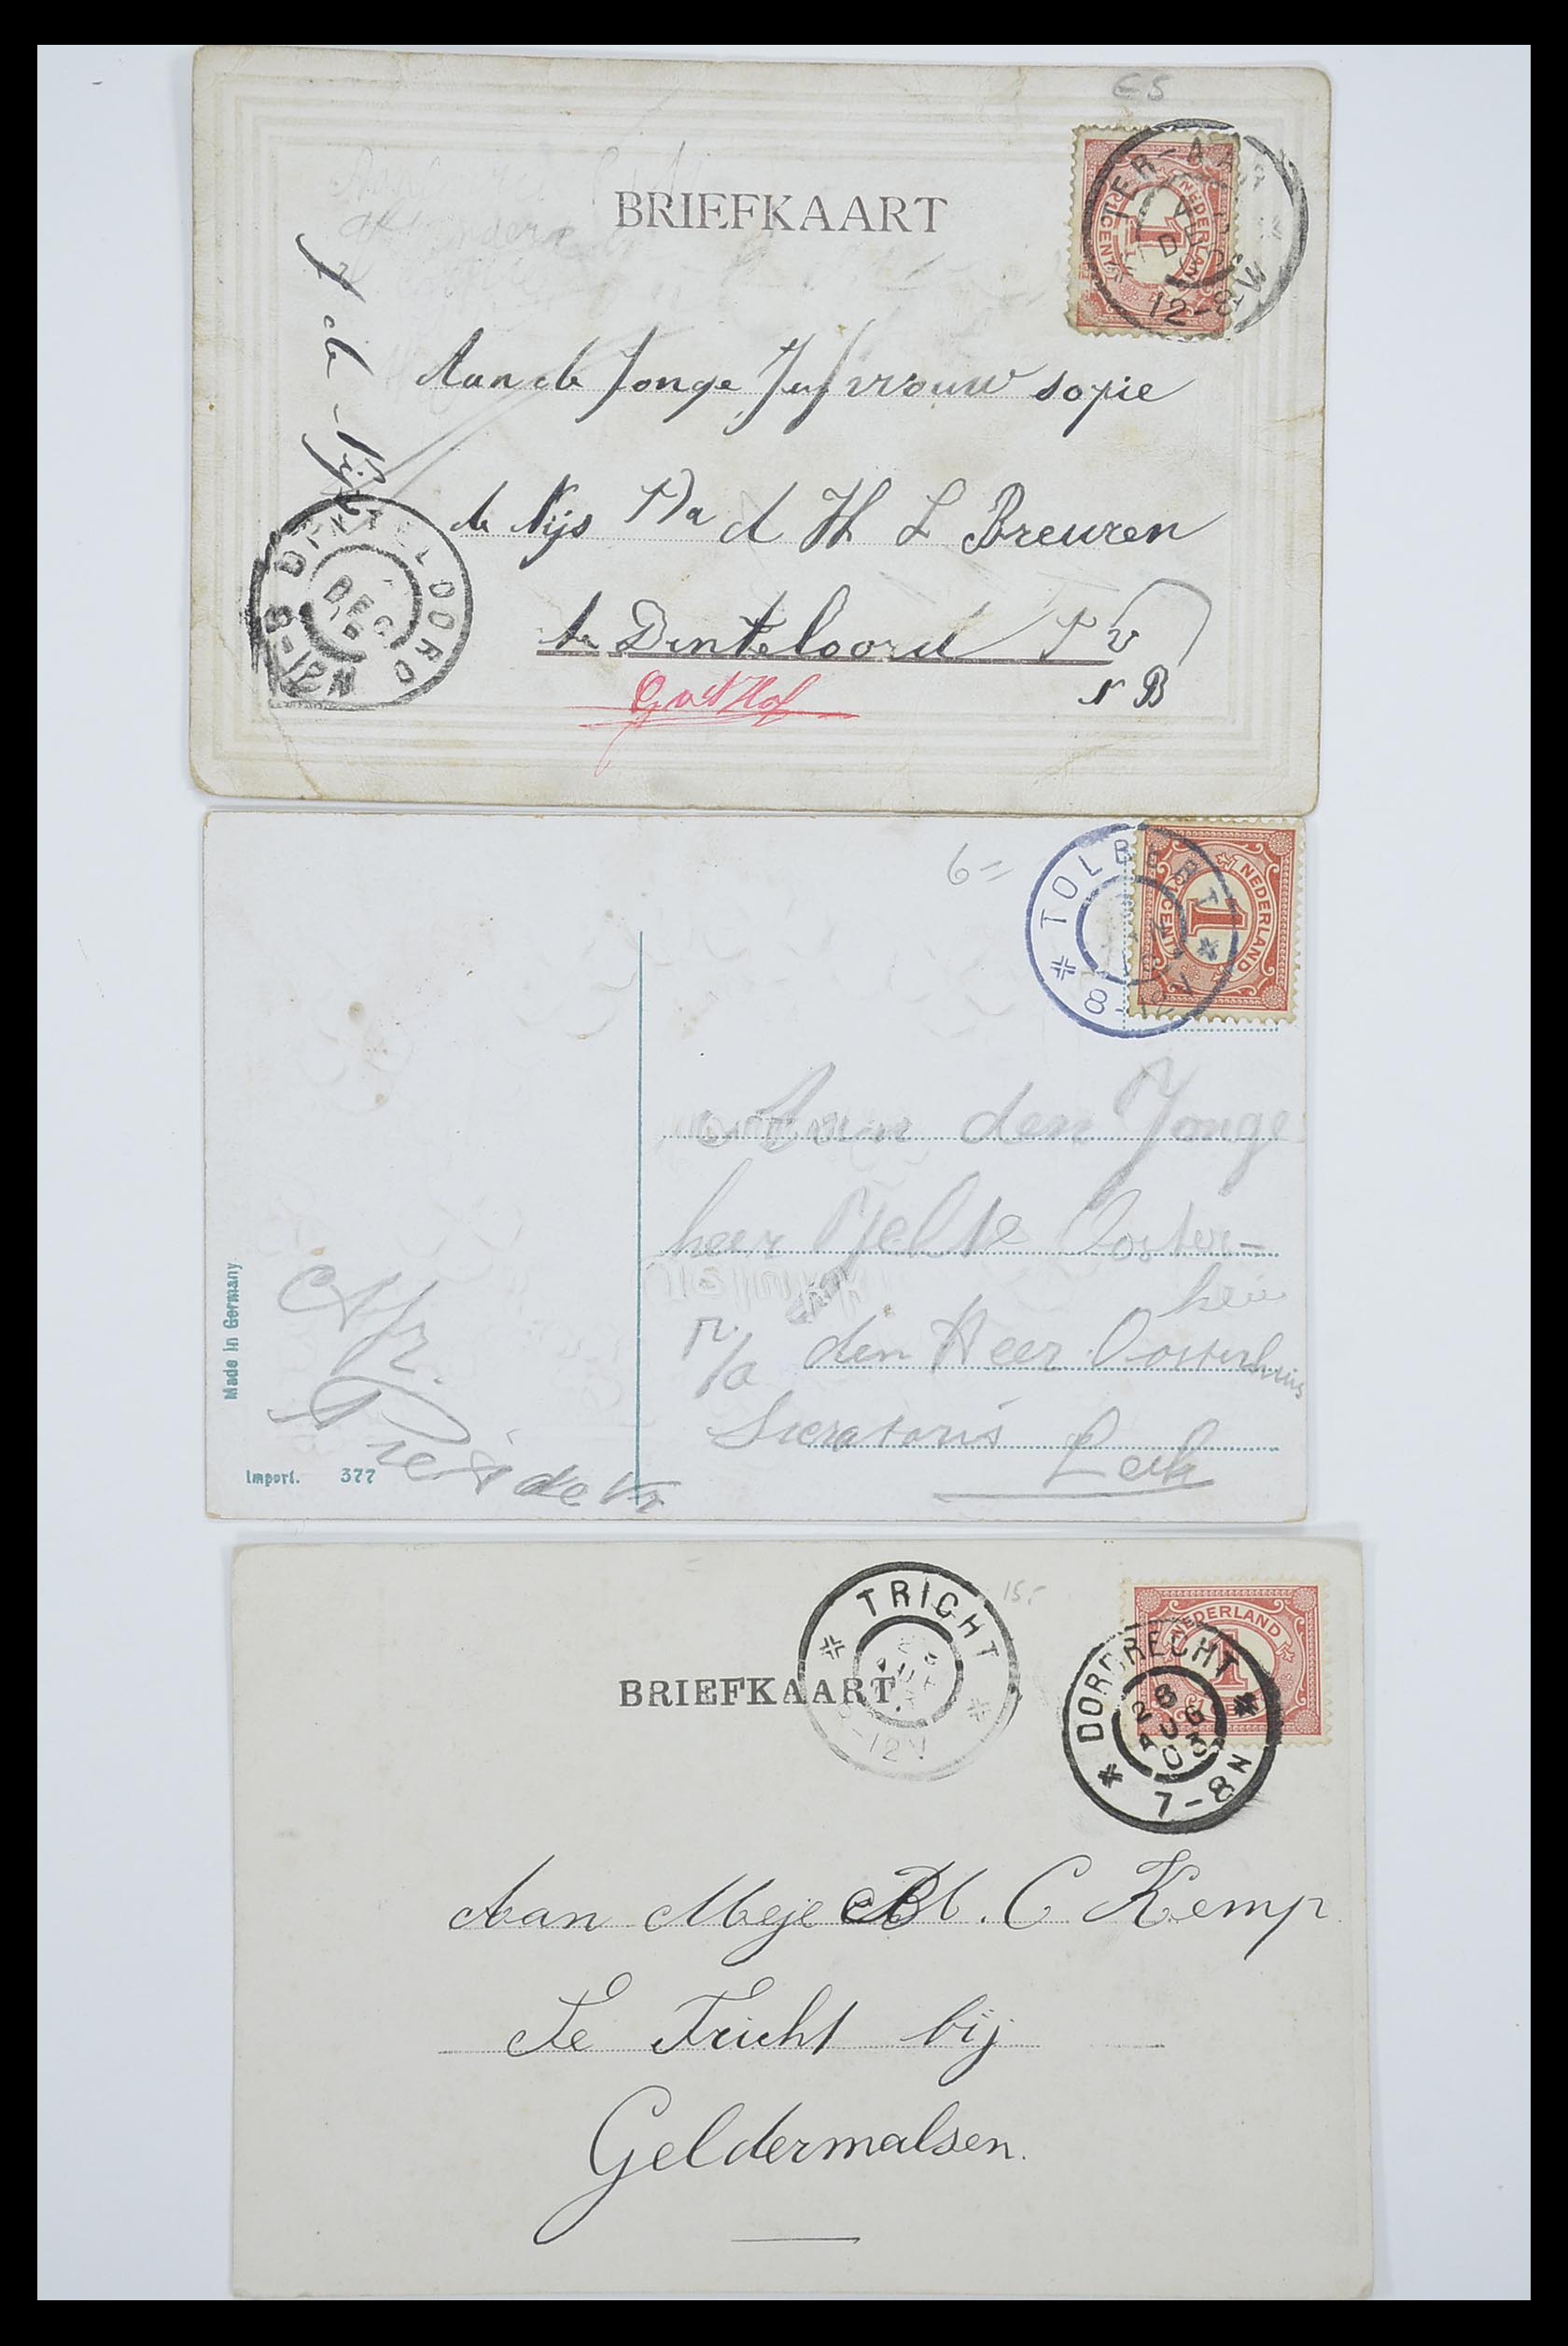 €5
BRIEFKAART
NEDERLAND
1
CENT
TER-AAR
DEC
12-8 V
Aan de Jonge Jufvrouw sopie
de Nijs P/a d H L Breuren
te Dinteloord
N B
DINTELOORD
DEC
8-12 N
6=
TOLBERT
8-12 V
NEDERLAND
1
CENT
Aan den Jonge
heer Jelte Ooster-
huis
P/a den Heer Oosterhuis
Sicratoris Leek
Afz.
Made in Germany
Import. 377
15,-
TRICHT
-12 V
BRIEFKAART
NEDERLAND
1
DORDRECHT
28
AUG
03
7-8 N
Aan Meje M. C Kemp
Te Tricht bij
Geldermalsen.